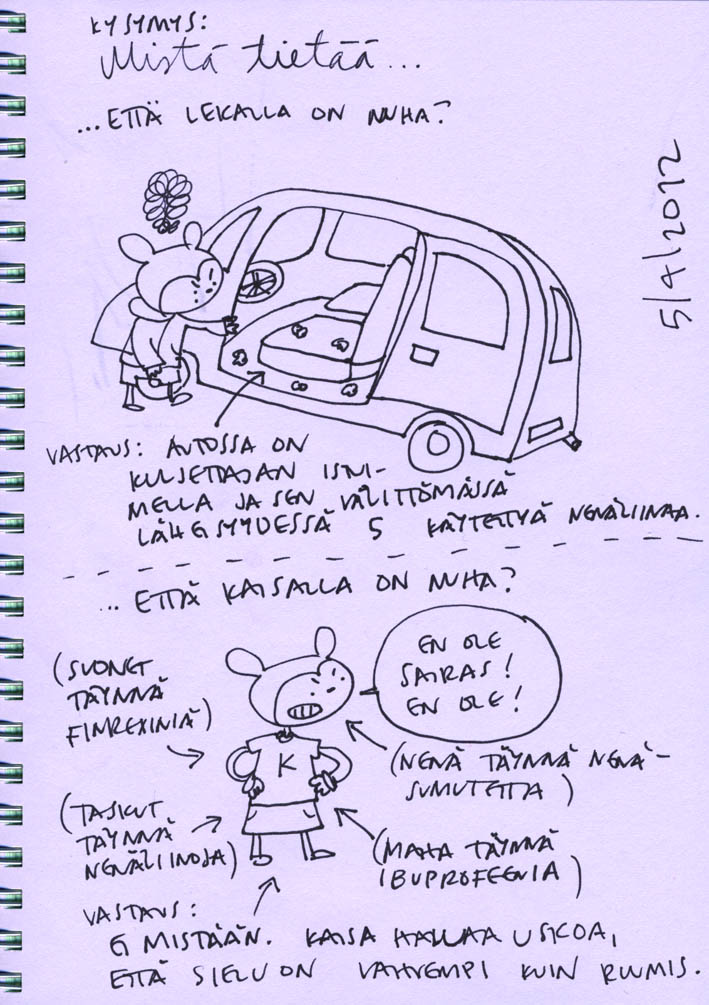 KYSYMYS:
Mistä tietää...
...ETTÄ LEKALLA ON NUHA?
5/4/2012
VASTAUS: AUTOSSA ON
KULJETTAJAN ISTUI-
MELLA JA SEN VÄLITTÖMÄSSÄ
LÄHEISYYDESSÄ 5 KÄYTETTYÄ NENÄLIINAA.
... ETTÄ KAISALLA ON NUHA?
EN OLE
SAIRAS!
EN OLE!
(SUONET
TÄYNNÄ
FINREXINIÄ)
(NENÄ TÄYNNÄ NENÄ-
SUMUTETTA)
K
(TASKUT
TÄYNNÄ
NENÄLIINOJA)
(MAHA TÄYNNÄ
IBUPROFEENIA)
VASTAUS:
EI MISTÄÄN. KAISA HALUAA USKOA,
ETTÄ SIELU ON VAHVEMPI KUIN RUUMIS.